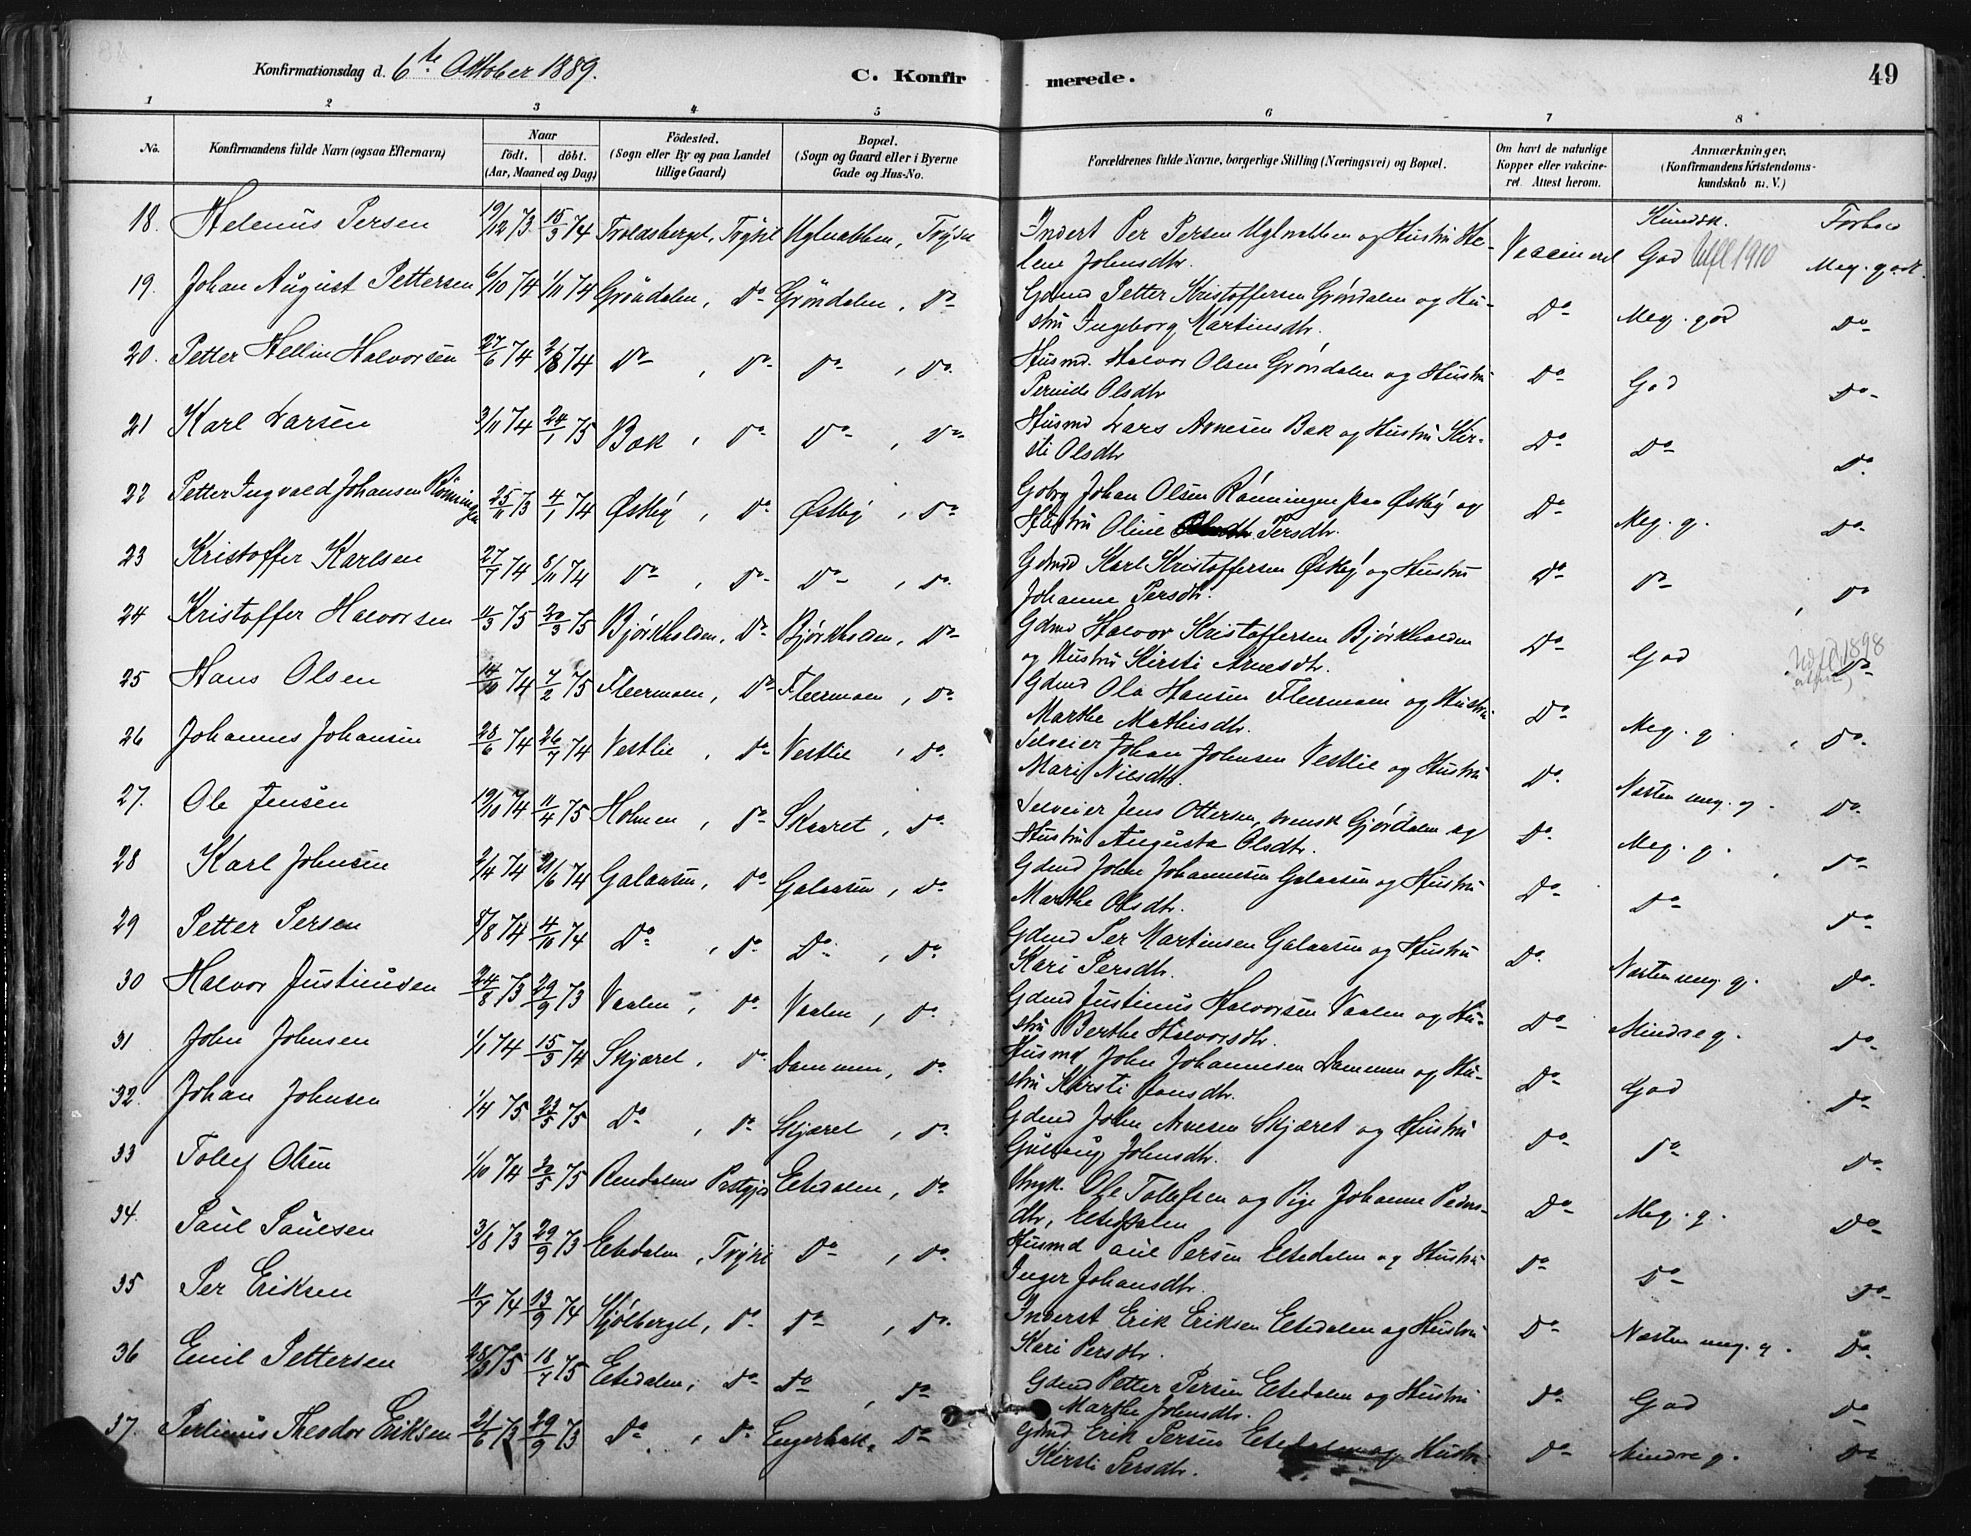 Konfirmationsdag d. 6te Oktober 1889.
C. Konfir merede. 49
1 2 3 4 5 6 7 8
No. Konfirmandens fulde Navn (ogsaa Efternavn) Naar födt. döbt. (Aar, Maaned og Dag) Födested. (Sogn eller By og paa Landet tillige Gaard) Bopæl. (Sogn og Gaard eller i Byerne Gade og Hus-No. Forældrenes fulde Navne, borgerlige Stilling (Næringsvei) og Bopæl. Om havt de naturlige Kopper eller vakcineret. Attest herom. Anmærkninger, (Konfirmandens Kristendomskundskab m. V.)
Kundsk. Forh.
18. Helenus Persen 19/12 73 15/3 74 Troldsberget, Trysil Uglnabben, Trysil Inderst Per Persen Uglnabben og Hustru He-
lene Johnsdtr. Vaccineret God Utfl 1910 Meg. godt.
19. Johan August Pettersen 6/10 74 1/11 74 Gröndalen, Do Gröndalen, Do Gdmd Petter Kristoffersen Gröndalen og Hu-
stru Ingeborg Martinsdtr. Do Meg. god Do
20. Petter Hellin Halvorsen 27/6 74 2/8 74 Do, Do Do, Do Husmd. Halvor Olsen Gröndalen og Hustru
Pernille Olsdtr Do God Do
21 Karl Larsen 3/11 74 24/1 75 Bak, Do Do, Do Husmd Lars Arnesen Bak og Hustru Kir-
sti Olsdtr Do Do Do
22 Petter Ingvald Johansen Rönningen 25/11 73 4/1 74 Østby, Do Østby, Do Gdbrg Johan Olsen Rönningen paa Østby og
Hustru Oline Persdtr. Do Meg. g. Do
23 Kristoffer Karlsen 27/7 74 8/11 74 Do, Do Do, Do Gdmd Karl Kristoffersen Østby og Hustru
Johanne Persdtr. Do Do Do
24 Kristoffer Halvorsen 4/3 75 20/3 75 Björkholden, Do Björkholden, Do Gdmd Halvor Kristoffersen Björkholden
og Hustru Kirsti Arnesdtr. Do God Do
25 Hans Olsen 14/10 74 7/2 75 Fleermoen, Do Fleermoen, Do Gdmd Ola Hansen Fleermoen og Hustru
Marthe Mathisdtr. Do Meg. g. Udfl 1898 Do
26 Johannes Johansen 28/6 74 26/7 74 Vestlie, Do Vestlie, Do Selveier Johan Johnsen Vestlie og Hustru
Mari Nilsdtr. Do Næsten meg. g. Do
27. Ole Jensen 19/10 74 11/4 75 Holmen, Do Skaaret, Do Selveier Jens Ottersen, svensk Gjördalen og
Hustru Augusta Olsdtr. Do Meg. g. Do
28 Karl Johnsen 2/4 74 21/6 74 Galaasen, Do Galaasen, Do Gdmd John Johannesen Galaasen og Hustru
Marthe Olsdtr. Do Do Do
29 Petter Persen 8/8 74 4/10 74 Do, Do Do, Do Gdmd Per Martinsen Galaasen og Hustru
Kari Persdtr. Do Næsten meg. g. Do
30 Halvor Justinusen 24/8 73 29/9 73 Vaalen, Do Vaalen, Do Gdmd Justinus Halvorsen Vaalen og Hu-
stru Berthe Halvorsdtr. Do Mindre g. Do
31 John Johnsen 1/1 74 15/3 74 Skjæret, Do Dammen, Do Husmd John Johannesen Dammen og Hu-
stru Kirsti Jonsdtr. Do God Do
32. Johan Johnsen 1/4 75 23/5 75 Do, Do Skjæret, Do Gdmd John Arnesen Skjæret og Hustru
Gulaug Johnsdtr. Do Do Do
33 Tollef Olsen 1/10 74 30/5 75 Rendalens Prstgjd Eltdalen, Do Ungk. Ole Tollefsen og Pige Johanne Peders-
dtr, Eltdalen Do Meg. g. Do
34. Paul Paulsen 3/8 73 29/9 73 Eltdalen, Trysil Do, Do Husmd Paul Persen Eltdalen og Hustru
Inger Johansdtr. Do Do Do
35 Per Eriksen 11/7 74 13/9 74 Kjölberget, Do Do, Do Inderst Erik Eriksen Eltdalen og Hustru
Kari Persdtr. Do Næsten meg. g. Do
36 Emil Pettersen 28/3 75 18/7 75 Eltdalen, Do Do, Do Gdmd Petter Persen Eltdalen og Hustru
Marthe Johnsdtr. Do God Do
37. Perlinus Theodor Eriksen 21/6 73 29/9 73 Do, Do Engerbak, Do Gdmd Erik Persen Eltdalen og Hustru
Kirsti Persdtr. Do Mindre g. Do